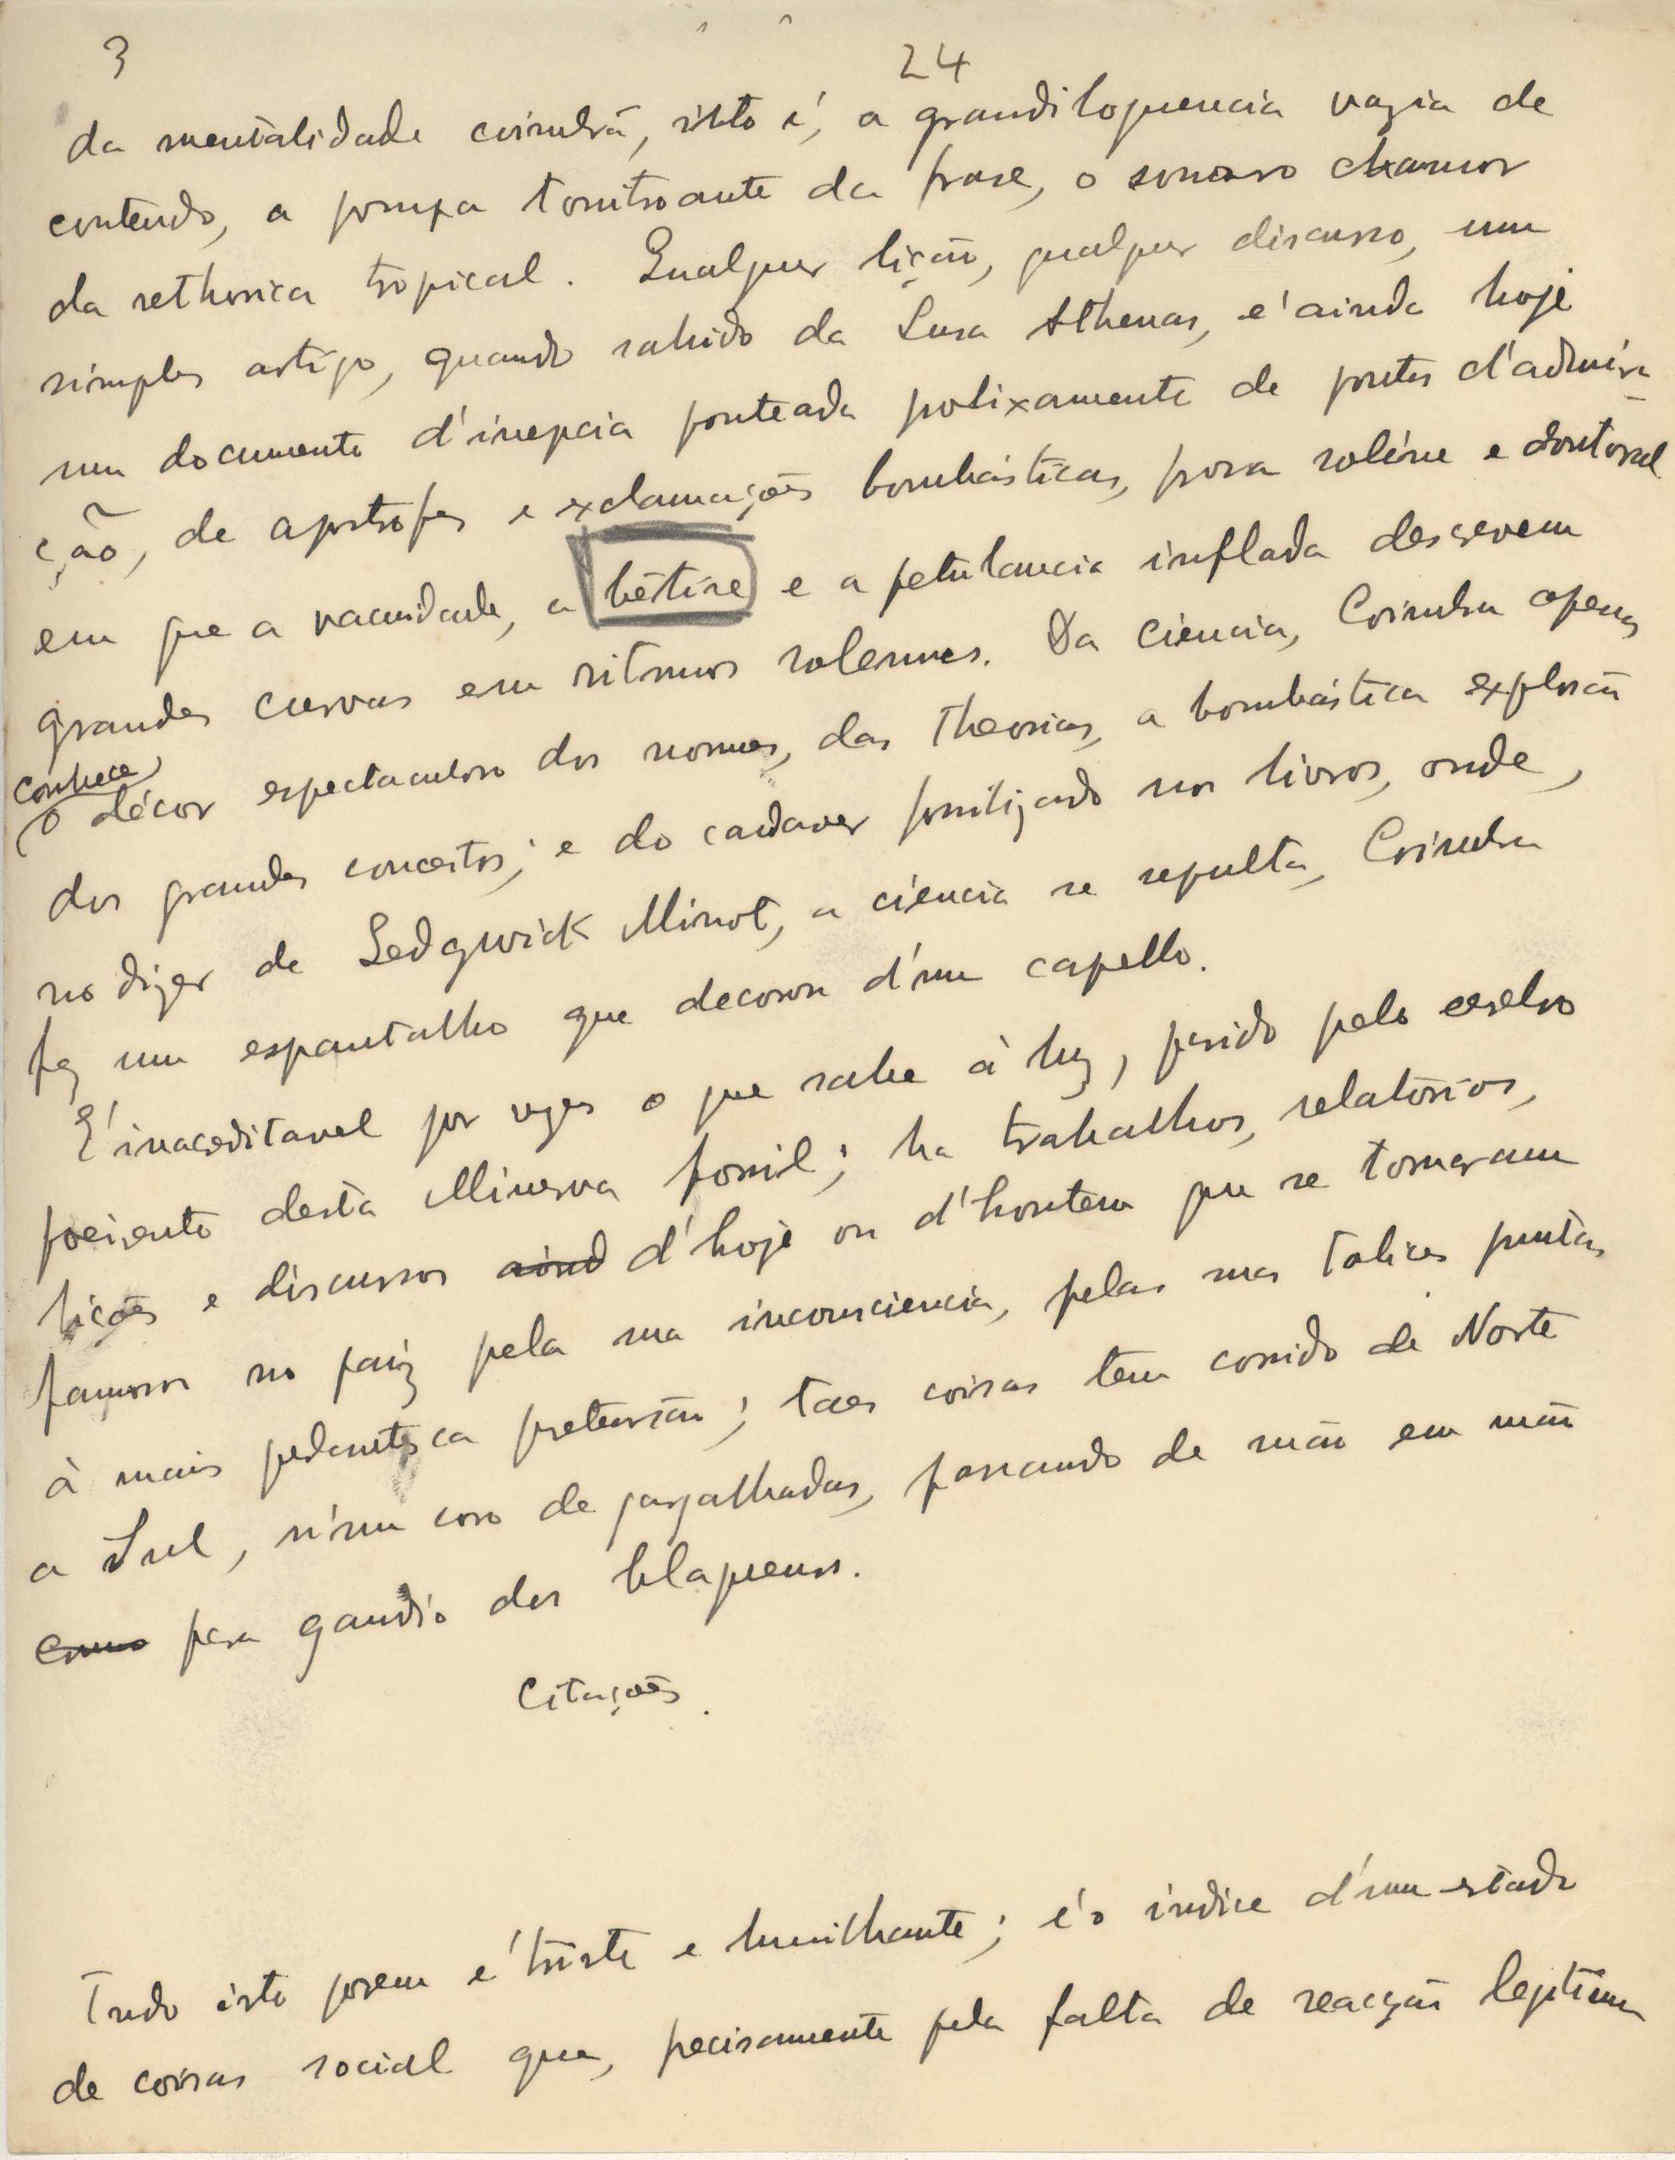 3 24
da mentalidade coimbrã, isto é, a grandiloquencia vazia de
contendo, a pompa tonitroante da frase, o sonoro clamor
da rethorica tropical. Qualquer lição, qualquer discurso, um
simples artigo, quando sahido da Lusa Athenas, é ainda hoje
um documento d'inepcia ponteada prolixamente de pontos d'admira-
ção, de apostrofes e exclamações bombásticas, prosa soléne e doutoral
em que a vacuidade, a bêtise e a petulancia inflada descrevem
grandes curvas em ritmos solemnes. Da ciencia, Coimbra apenas
conhece
o décor espectaculoso dos nomes, das theorias, a bombástica explosão
dos grandes conceitos; e do cadaver fossilizado nos livros, onde,
no dizer de Sedgwick Minot, a ciéncia se sepulta, Coimbra
fez um espantalho que decorou d'um capello.
É inacreditavel por vezes o que sahe à luz, parido pelo cerebro
poeirento desta Minerva fossil; ha trabalhos, relatórios,
lições e discursos aind d'hoje ou d'hontem que se tornaram
famosos no paiz pela sua inconsciencia, pelas suas tolices juntas
à mais pedantesca pretensão; taes coisas tem corrido de Norte
a Sul, n'um coro de gargalhadas, passando de mão em mão
como para gaudio dos blagueurs.
Citações.
Tudo isto porem é triste e humilhante; é o índice d'um estado
de coisas social que, precisamente pela falta de reacção legitima